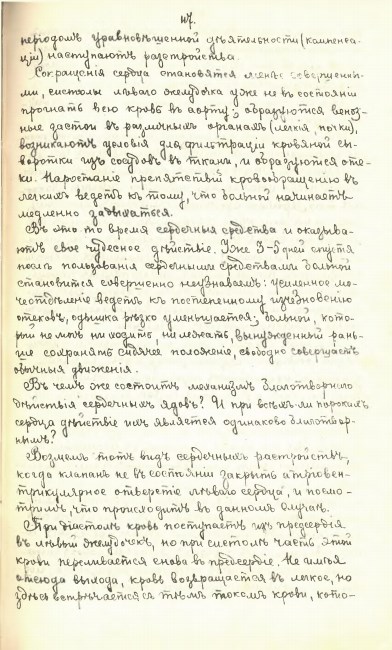 47.
періодомъ уравновѣшенной дѣятельности (компенса-
ціи) наступаютъ разстройства.
Сокращенія сердца становятся менѣе совершенны-
ми, систолы лѣваго желудочка уже не въ состояніи
прогнать всю кровь въ аорту; образуются веноз-
ные застои въ различныхъ органахъ (легкія, почки),
возникаютъ условія для фильтраціи кровяной сы-
воротки изъ сосудовъ въ ткани, и образуются оте-
ки. Наростаніе препятствій кровообращенію въ
легкихъ ведетъ къ тому, что больной начинаетъ
медленно задыхаться.
Въ это то время сердечныя средства и оказыва-
ютъ свое чудесное дѣйствіе. Уже 3-5 дней спустя
послѣ пользованія сердечными средствами больной
становится совершенно неузнаваемъ: усиленное мо-
чеотдѣленіе ведетъ къ постепенному изчезновенію
отековъ, одышка рѣзко уменьшается; больной, кото-
рый не могъ ни ходить, ни лежать, вынужденный рань-
ше сохранять сидячее положеніе, свободно совершаетъ
обычныя движенія.
Въ чемъ же состоитъ механизмъ благотворнаго
дѣйствія сердечныхъ ядовъ? И при всѣхъ-ли порокахъ
сердца дѣйствіе ихъ является одинаково благотвор-
нымъ?
Возьмемъ тотъ видъ сердечныхъ разстройствъ,
когда клапанъ не въ состояніи закрыть атріовен-
трикулярное отверстіе лѣваго сердца, и посмо-
тримъ, что происходитъ въ данномъ случаѣ.
При діастолѣ кровь поступаетъ изъ предсердія
въ лѣвый желудочекъ, но при систолѣ часть этой
крови переливается снова въ предсердіе. Не имѣя
отсюда выхода, кровь возвращается въ легкое, но
здѣсь встрѣчается съ тѣмъ токомъ крови, кото-